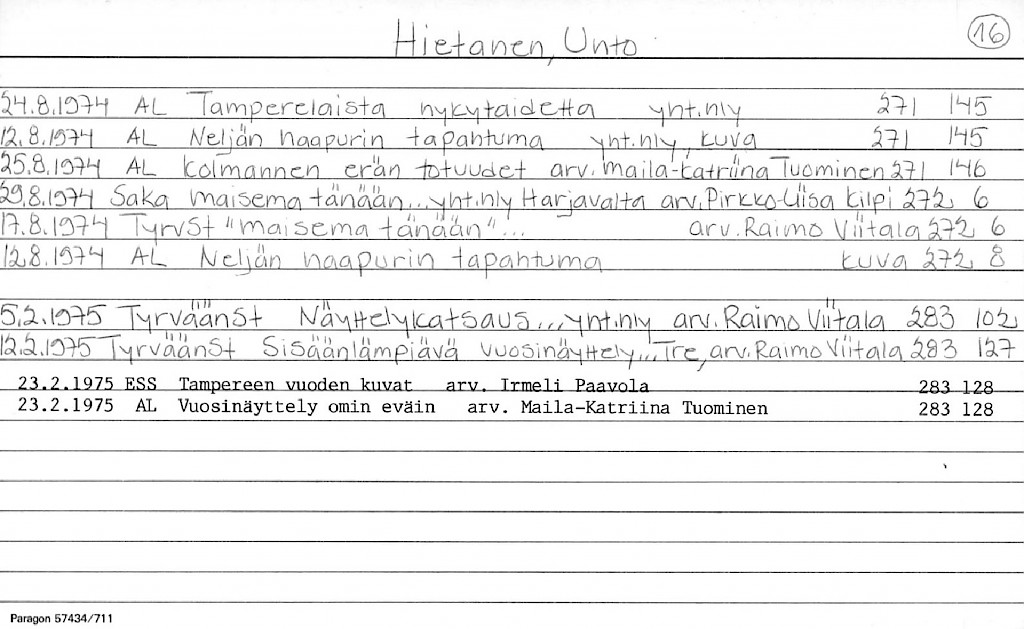 Hietanen, Unto
16
24.8.1974 AL Tamperelaista nykytaidetta yht.nly 271 145
12.8.1974 AL Neljän naapurin tapahtuma yht.nly, kuva 271 145
25.8.1974 AL Kolmannen erän totuudet arv. Maila-Katriina Tuominen 271 146
29.8.1974 SaKa maisema tänään... yht.nly Harjavalta arv. Pirkko-Liisa Kilpi 272 6
17.8.1974 TyrvSt "maisema tänään"... arv. Raimo Viitala 272 6
12.8.1974 AL Neljän naapurin tapahtuma kuva 272 8
5.2.1975 TyrväänSt Näyttelykatsaus... yht.nly arv. Raimo Viitala 283 102
12.2.1975 TyrväänSt Sisäänlämpiävä vuosinäyttely... Tre, arv. Raimo Viitala 283 127
23.2.1975 ESS Tampereen vuoden kuvat arv. Irmeli Paavola 283 128
23.2.1975 AL Vuosinäyttely omin eväin arv. Maila-Katriina Tuominen 283 128
Paragon 57434/711